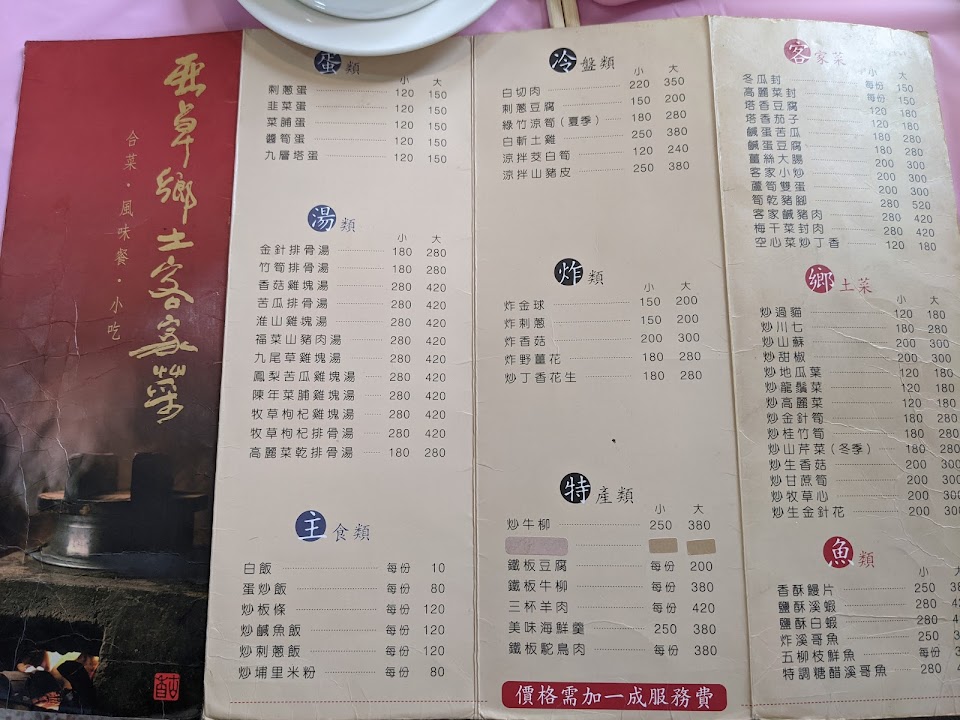 亞卓鄉土客家菜
合菜・風味餐・小吃
蛋類
小 大
刺蔥蛋 120 150
韭菜蛋 120 150
菜脯蛋 120 150
醬筍蛋 120 150
九層塔蛋 120 150
湯類
小 大
金針排骨湯 180 280
竹筍排骨湯 180 280
香菇雞塊湯 280 420
苦瓜排骨湯 280 420
淮山雞塊湯 280 420
福菜山豬肉湯 280 420
九尾草雞塊湯 280 420
鳳梨苦瓜雞塊湯 280 420
陳年菜脯雞塊湯 280 420
牧草枸杞雞塊湯 280 420
牧草枸杞排骨湯 280 420
高麗菜乾排骨湯 180 280
主食類
白飯 每份 10
蛋炒飯 每份 80
炒板條 每份 120
炒鹹魚飯 每份 120
炒刺蔥飯 每份 120
炒埔里米粉 每份 80
冷盤類
小 大
白切肉 220 350
刺蔥豆腐 150 200
綠竹涼筍(夏季) 180 280
白斬土雞 250 380
涼拌茭白筍 120 240
涼拌山豬皮 250 380
炸類
小 大
炸金球 150 200
炸刺蔥 150 200
炸香菇 200 300
炸野薑花 180 280
炒丁香花生 180 280
特產類
小 大
炒牛柳 250 380
鐵板豆腐 每份 200
鐵板牛柳 每份 380
三杯羊肉 每份 420
美味海鮮羹 250 380
鐵板駝鳥肉 每份 380
價格需加一成服務費
客家菜
小 大
冬瓜封 每份 150
高麗菜封 每份 150
塔香豆腐 120 180
塔香茄子 120 180
鹹蛋苦瓜 180 280
鹹蛋豆腐 180 280
薑絲大腸 200 300
客家小炒 200 300
蘆筍雙蛋 200 300
筍乾豬腳 280 520
客家鹹豬肉 280 420
梅干菜封肉 280 420
空心菜炒丁香 120 180
鄉土菜
小 大
炒過貓 120 180
炒川七 180 280
炒山蘇 200 300
炒甜椒 200 300
炒地瓜葉 120 180
炒龍鬚菜 120 180
炒高麗菜 120 180
炒金針筍 180 280
炒桂竹筍 180 280
炒山芹菜(冬季) 180 280
炒生香菇 200 300
炒甘蔗筍 200 300
炒牧草心 200 300
炒生金針花 200 300
魚類
小 大
香酥鰻片 250
鹽酥溪蝦 280
鹽酥白蝦 280
炸溪哥魚 250
五柳枝鮮魚 每份
特調糖醋溪哥魚 280